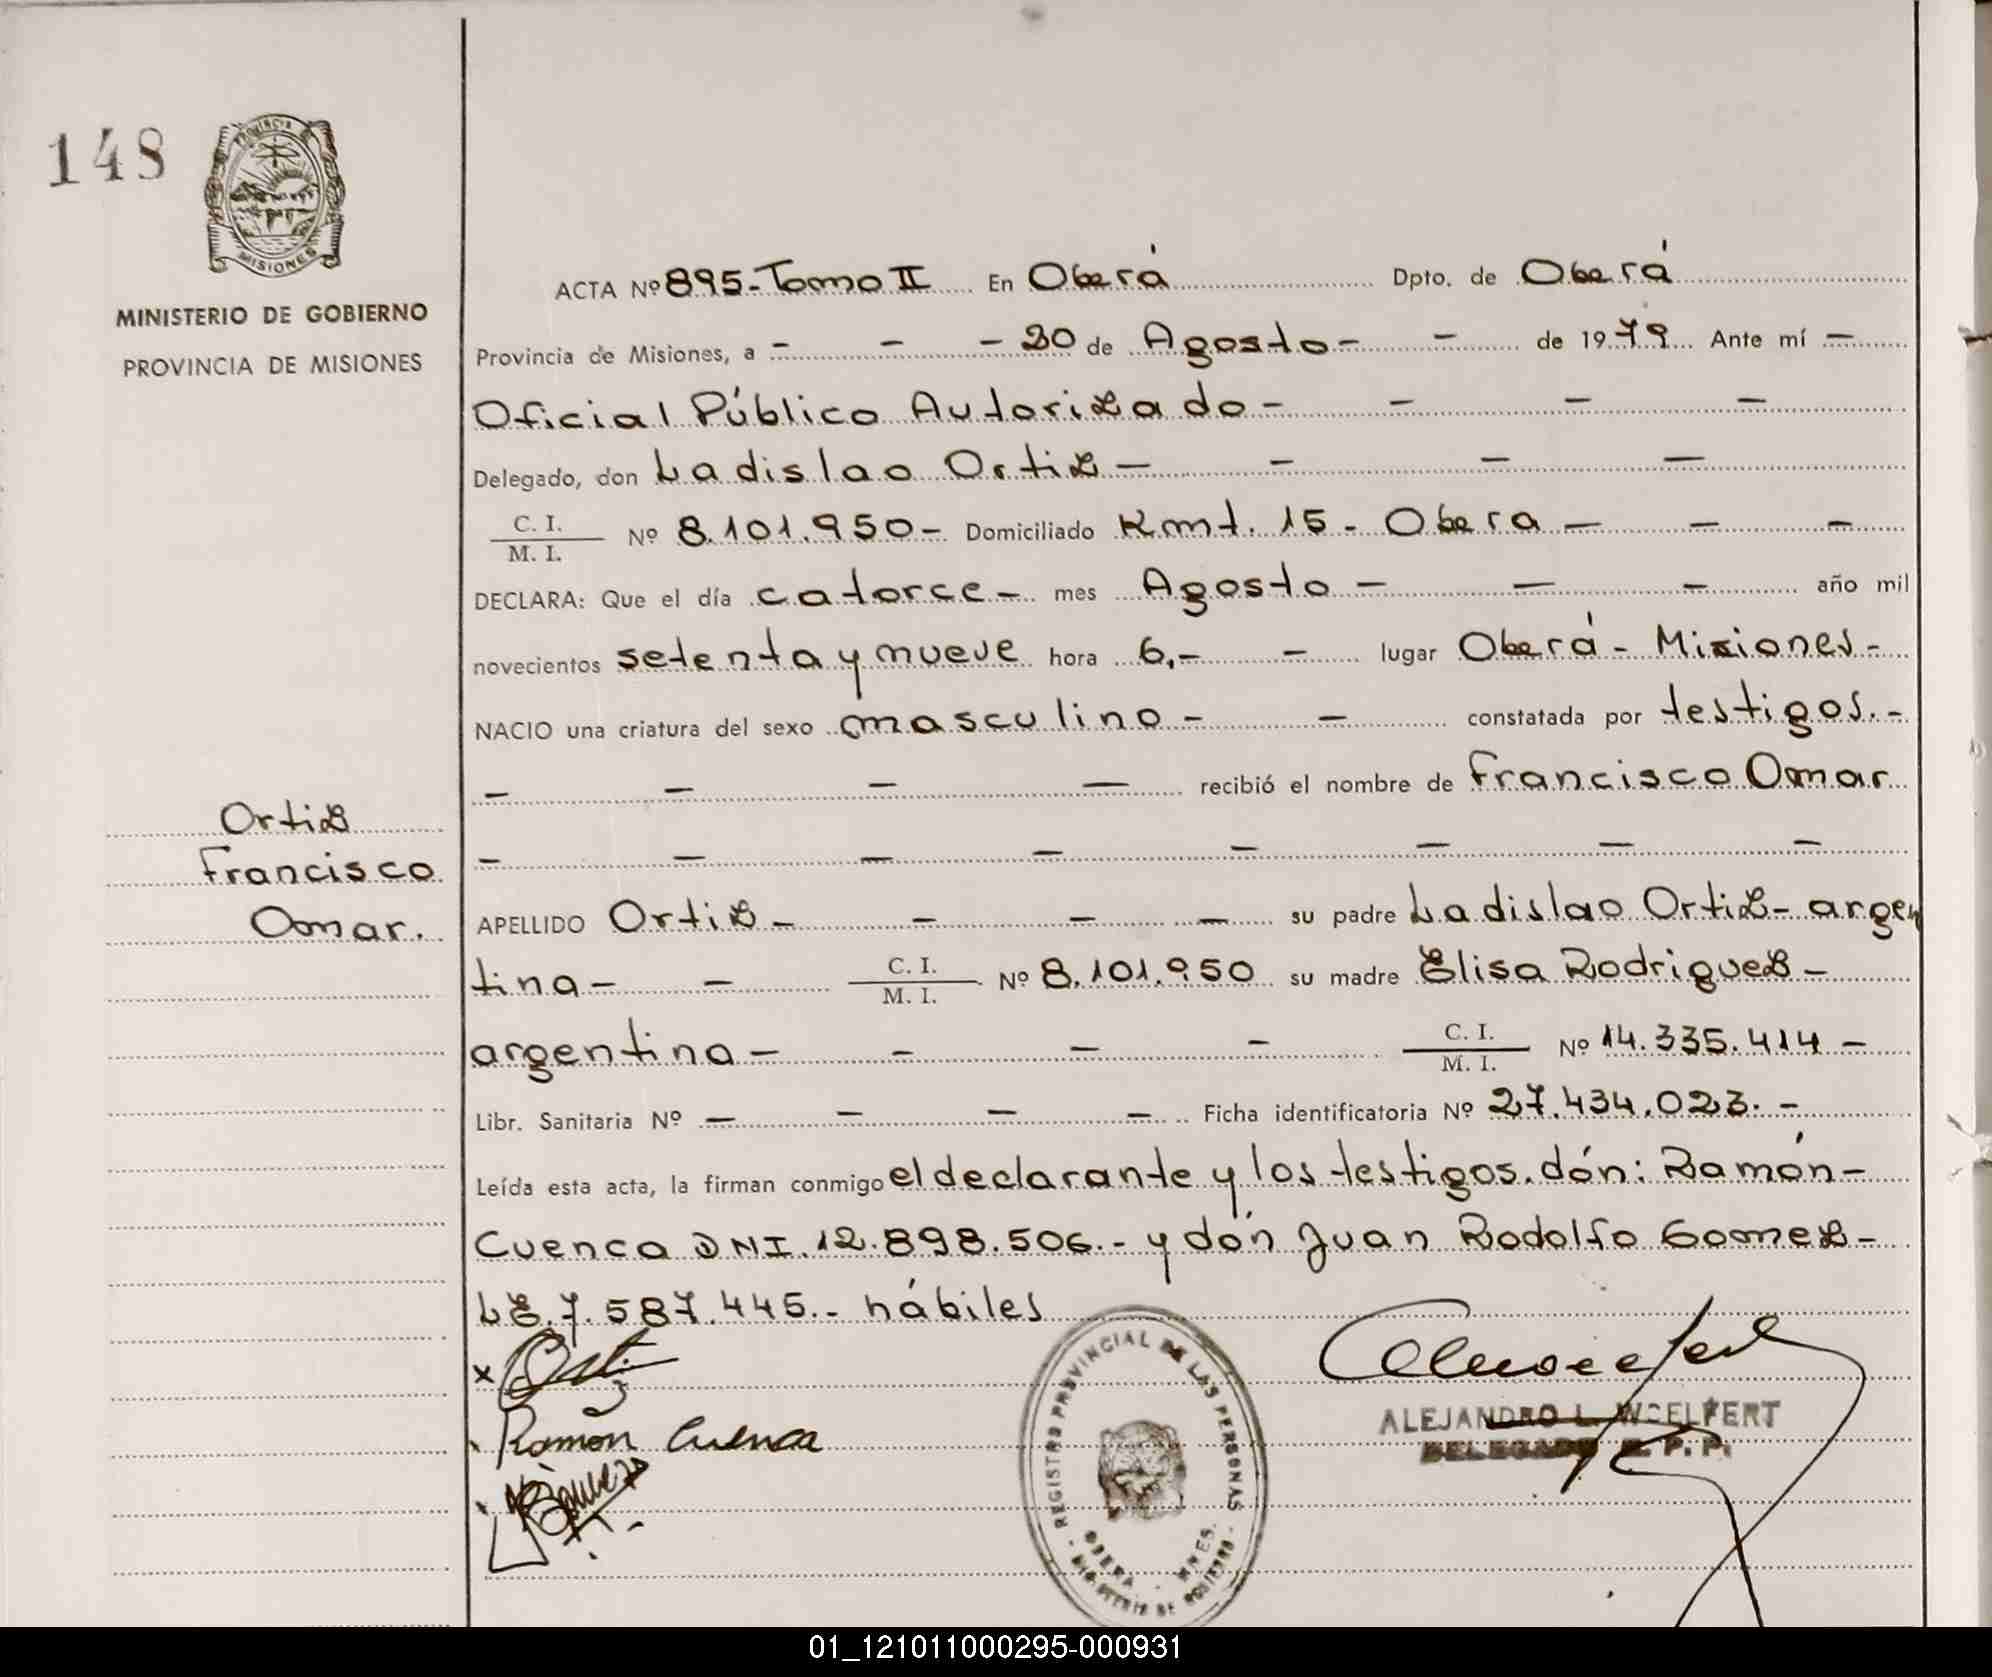 148
PROVINCIA DE
MISIONES
MINISTERIO DE GOBIERNO
PROVINCIA DE MISIONES
ACTA Nº 895-Tomo II En Oberá Dpto. de Oberá
Provincia de Misiones, a - - - 30 de Agosto - - de 1979 Ante mí -
Oficial Público Autorizado - - - -
Delegado, don Ladislao Ortiz - - - -
C. I.
M. I. Nº 8.101.950 - Domiciliado Kmt. 15 - Obera - - -
DECLARA: Que el día catorce - mes Agosto - - - año mil
novecientos setenta y nueve hora 6,- - lugar Oberá - Misiones -
NACIO una criatura del sexo masculino - - constatada por testigos. -
- - - - recibió el nombre de Francisco Omar
- - - - - - - -
Ortiz
Francisco
Omar.
APELLIDO Ortiz - - - - su padre Ladislao Ortiz - argen
tina - - C. I. M. I. Nº 8.101.950 su madre Elisa Rodriguez -
argentina - - - - C. I. M. I. Nº 14.335.414 -
Libr. Sanitaria Nº - - - - Ficha identificatoria Nº 27.434.023. -
Leída esta acta, la firman conmigo el declarante y los testigos. dón: Ramón -
Cuenca DNI. 12.898.506. - y dón Juan Rodolfo Gomez -
LE. 7.587.445. - hábiles
x Ortiz
Ramón Cuenca
REGISTRO PROVINCIAL DE LAS PERSONAS
OBERA - MNES.
MINISTERIO DE GOBIERNO
ALEJANDRO L. WOELFERT
DELEGADO R. P. P.
01_121011000295-000931